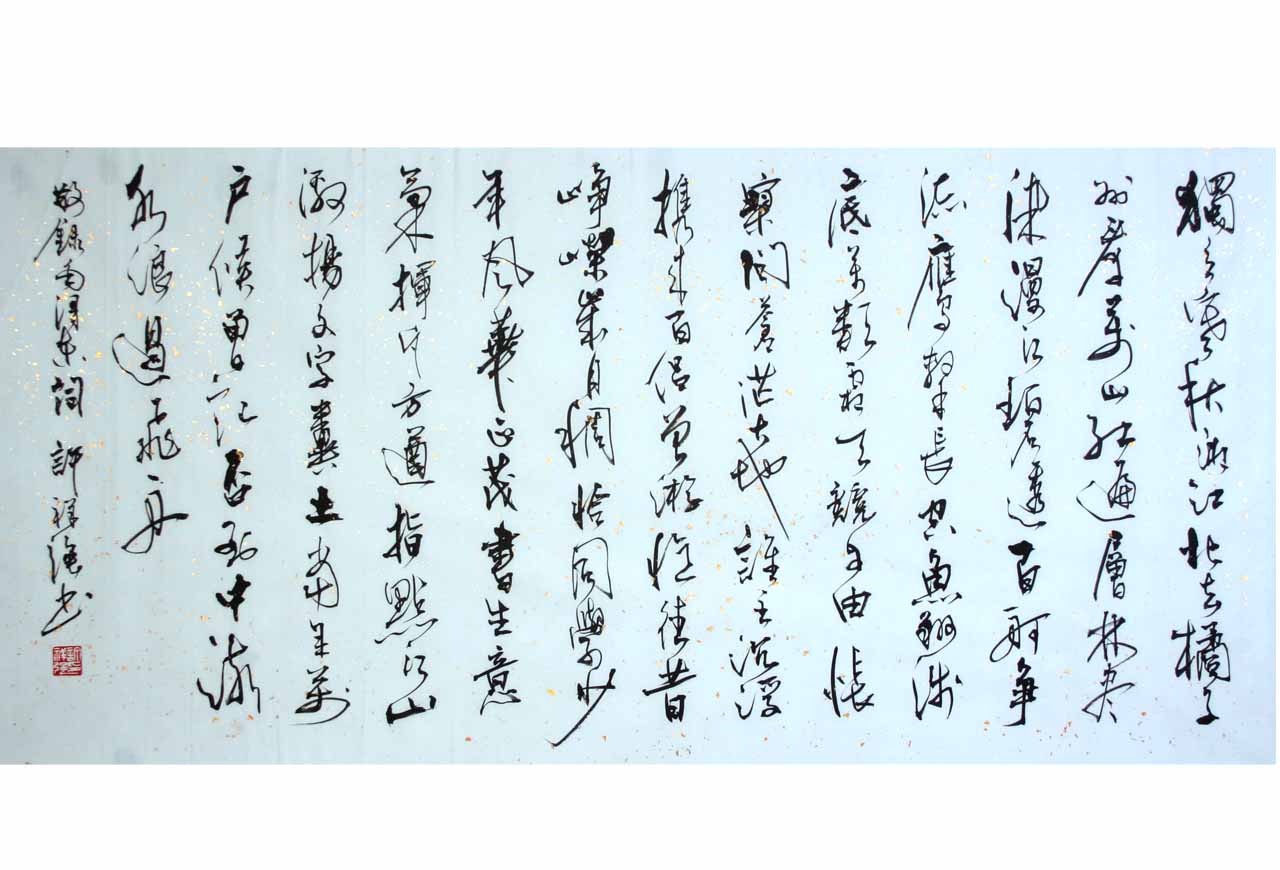 獨立寒秋湘江北去橘子
洲頭看萬山紅遍層林尽
染漫江碧透百舸争
流鷹擊長空魚翔淺
底萬類霜天競自由悵
寥闊蒼茫大地誰主沉浮
携來百侣曾游憶往昔
崢嶸歲月稠恰同學少
年風華正茂書生意
氣揮斥方遒指點江山
激揚文字糞土當年萬
户侯曾記否到中流
水浪遏飛舟
敬録毛澤東詞 祥強書